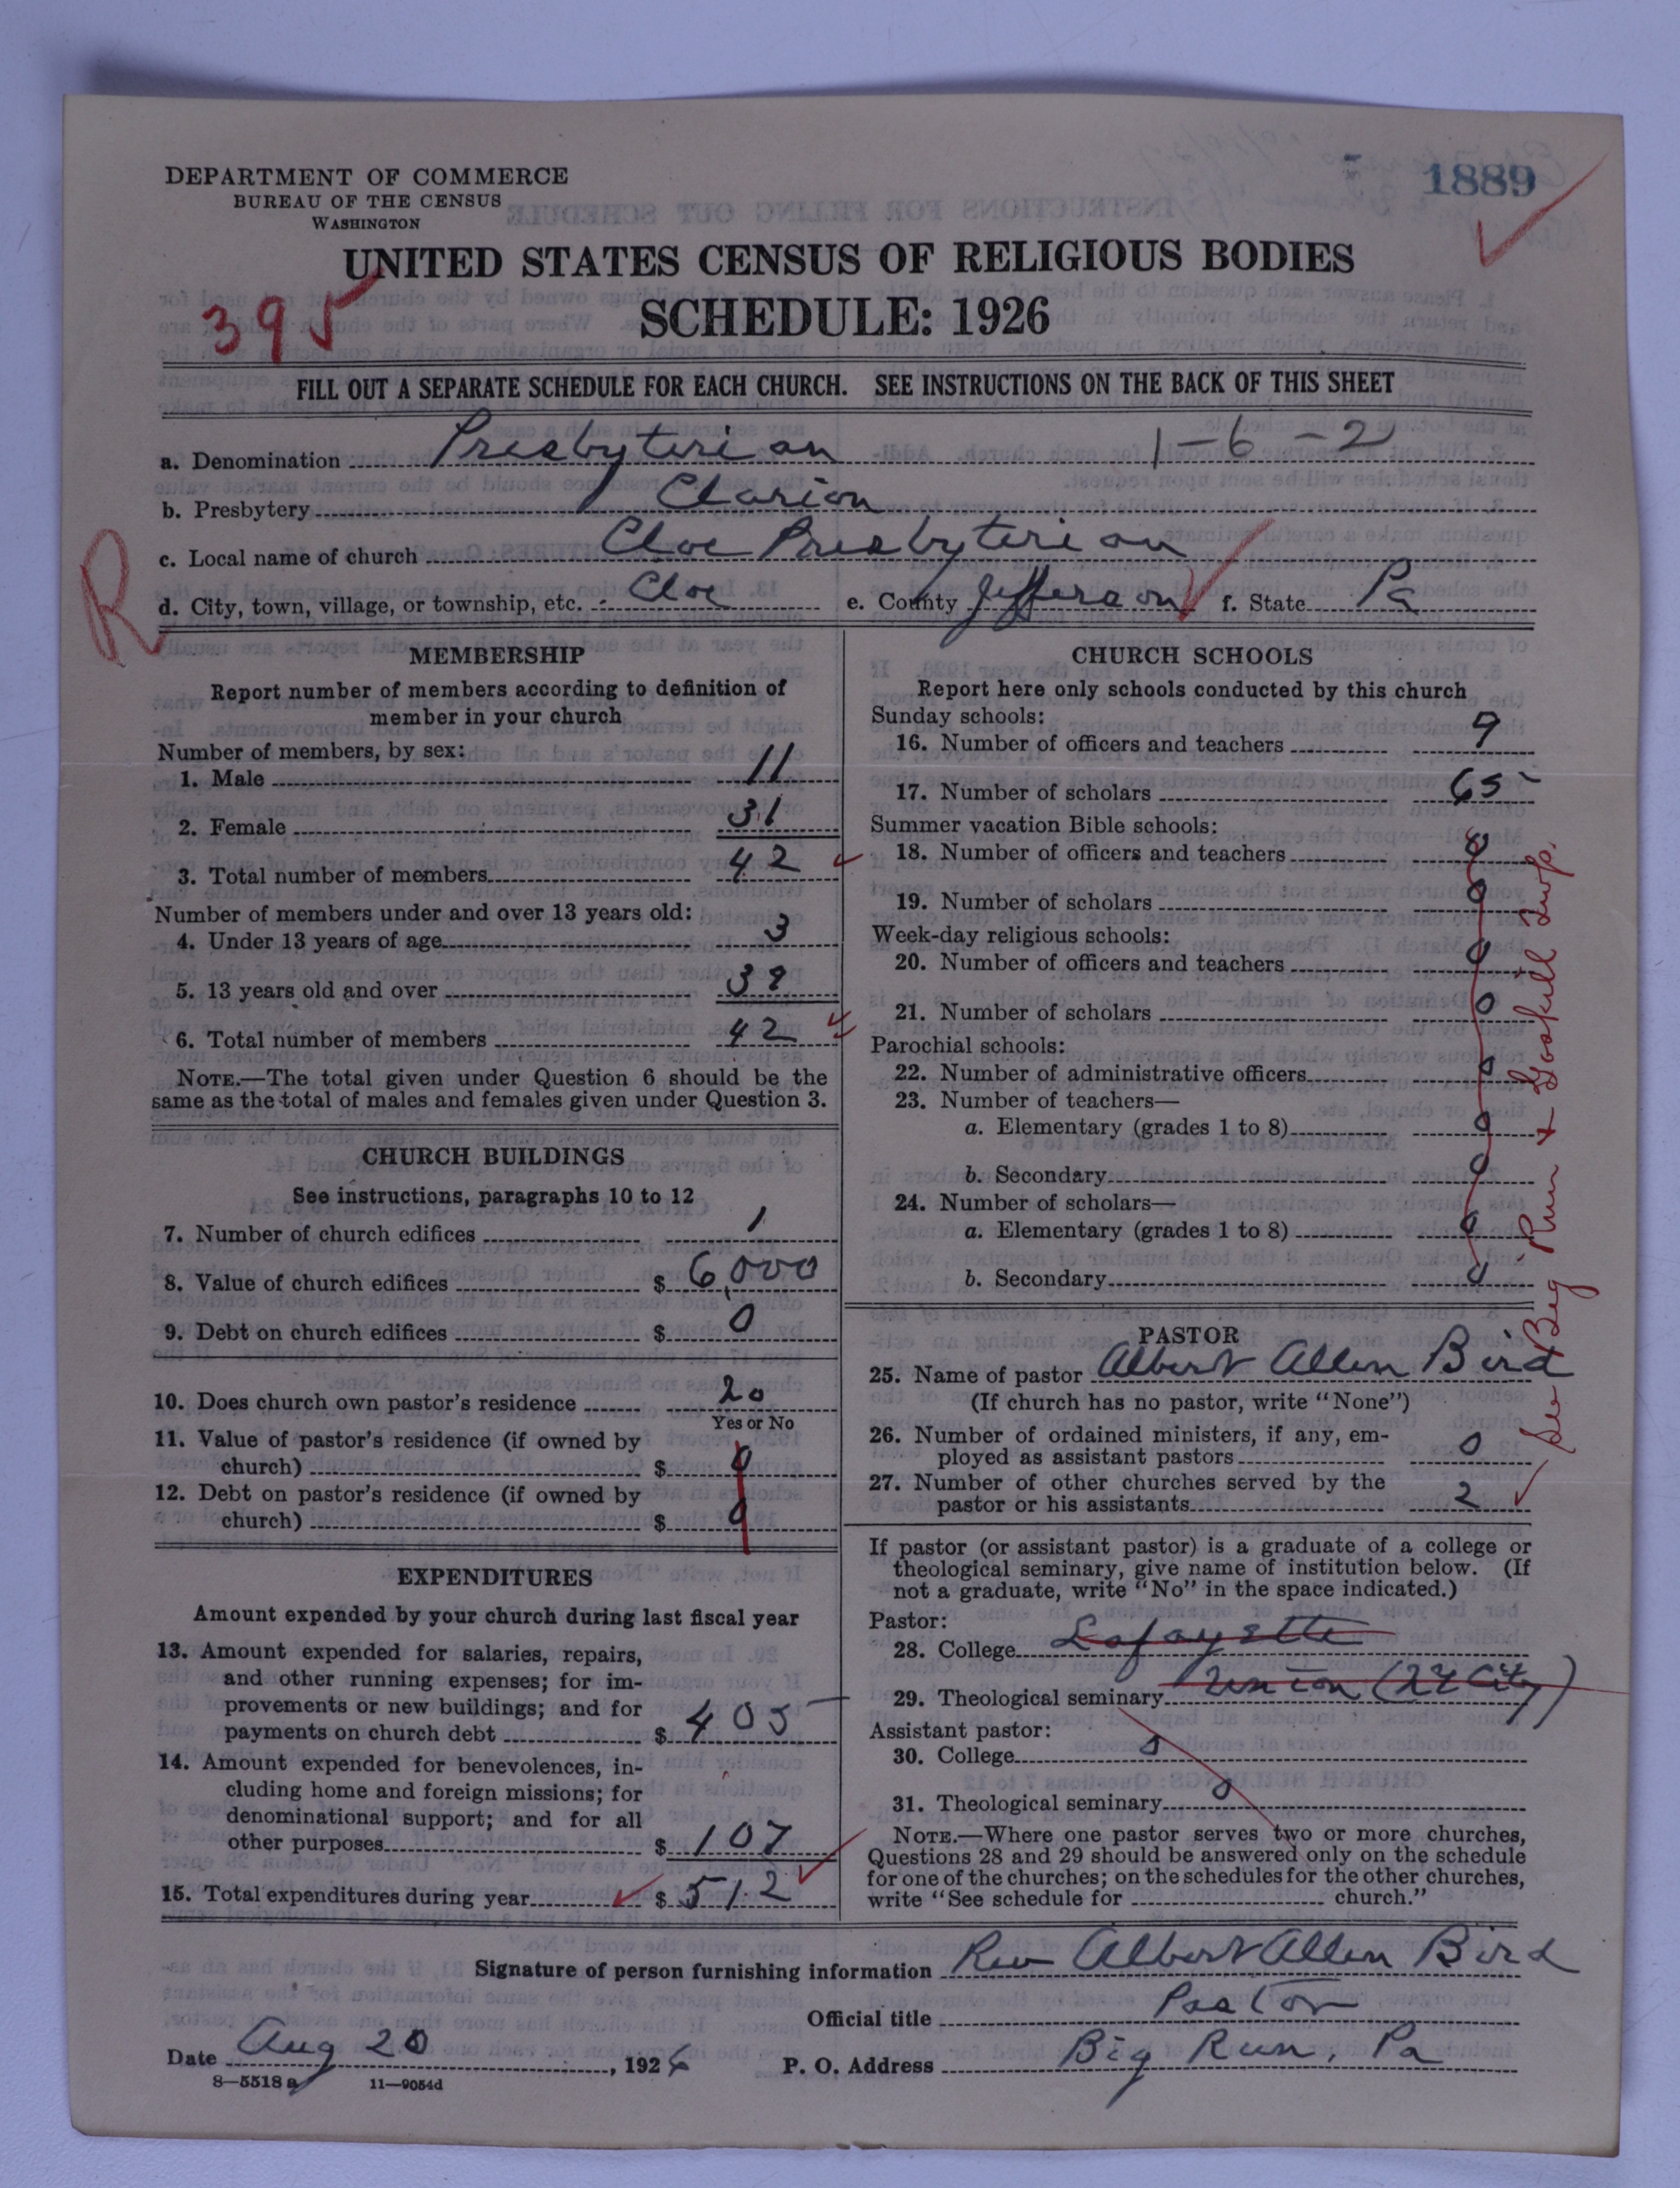 DEPARTMENT OF COMMERCE
BUREAU OF THE CENSUS
WASHINGTON
1889
UNITED STATES CENSUS OF RELIGIOUS BODIES
SCHEDULE: 1926
395
FILL OUT A SEPARATE SCHEDULE FOR EACH CHURCH. SEE INSTRUCTIONS ON THE BACK OF THIS SHEET
a. Denomination Presbyterian 1-6-2
b. Presbytery Clarion
c. Local name of church Cloe Presbyterian
R
d. City, town, village, or township, etc. Cloe e. County Jefferson f. State Pa
MEMBERSHIP
Report number of members according to definition of
member in your church
Number of members, by sex:
1. Male 11
2. Female 31
3. Total number of members 42
Number of members under and over 13 years old:
4. Under 13 years of age 3
5. 13 years old and over 39
6. Total number of members 42
NOTE.—The total given under Question 6 should be the
same as the total of males and females given under Question 3.
CHURCH BUILDINGS
See instructions, paragraphs 10 to 12
7. Number of church edifices 1
8. Value of church edifices $ 6,000
9. Debt on church edifices $ 0
10. Does church own pastor's residence no
Yes or No
11. Value of pastor's residence (if owned by
church) $ 0
12. Debt on pastor's residence (if owned by
church) $ 0
EXPENDITURES
Amount expended by your church during last fiscal year
13. Amount expended for salaries, repairs,
and other running expenses; for im-
provements or new buildings; and for
payments on church debt $ 405
14. Amount expended for benevolences, in-
cluding home and foreign missions; for
denominational support; and for all
other purposes $ 107
15. Total expenditures during year $ 512
CHURCH SCHOOLS
Report here only schools conducted by this church
Sunday schools:
16. Number of officers and teachers 9
17. Number of scholars 65
Summer vacation Bible schools:
18. Number of officers and teachers 0
19. Number of scholars 0
Week-day religious schools:
20. Number of officers and teachers 0
21. Number of scholars 0
Parochial schools:
22. Number of administrative officers 0
23. Number of teachers—
a. Elementary (grades 1 to 8) 0
b. Secondary 0
24. Number of scholars—
a. Elementary (grades 1 to 8) 0
b. Secondary 0
See Big Run & Gaskill Twp.
PASTOR
25. Name of pastor Albert Allen Bird
(If church has no pastor, write "None")
26. Number of ordained ministers, if any, em-
ployed as assistant pastors 0
27. Number of other churches served by the
pastor or his assistants 2
If pastor (or assistant pastor) is a graduate of a college or
theological seminary, give name of institution below. (If
not a graduate, write "No" in the space indicated.)
Pastor:
28. College Lafayette
29. Theological seminary Union (NY City)
Assistant pastor:
30. College 0
31. Theological seminary 0
NOTE.—Where one pastor serves two or more churches,
Questions 28 and 29 should be answered only on the schedule
for one of the churches; on the schedules for the other churches,
write "See schedule for church."
Signature of person furnishing information Rev Albert Allen Bird
Official title Pastor
Date Aug 20, 1926 P. O. Address Big Run, Pa
8—5518a 11—9054d